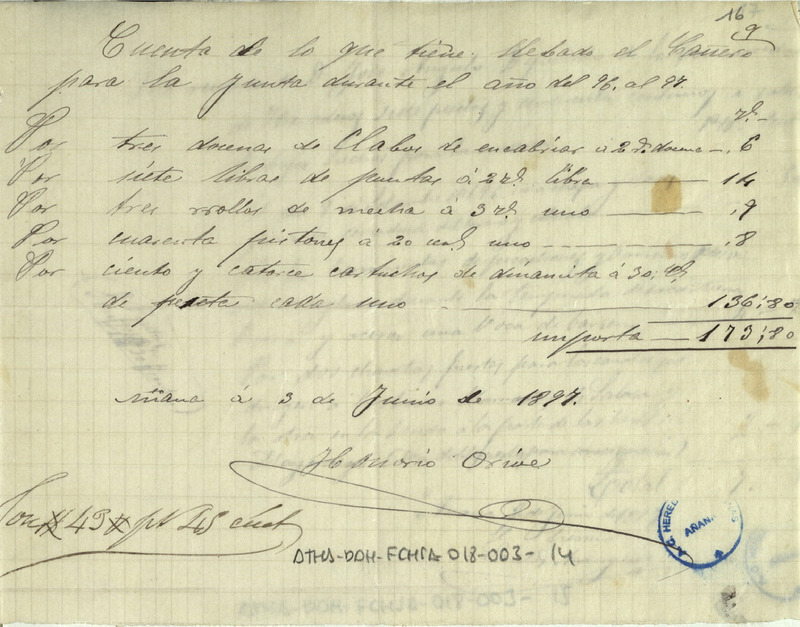 16
9
Cuenta de lo que tiene llebado el Casero
para la Junta durante el año del 96. al 97.
rs.
Por tres docenas de Clabos de encabriar á 2 rs. docena -. 6
Por siete libras de puntas á 2 rs. libra — 14
Por tres rrollos de mecha á 3 rs. uno — ,9
Por cuarenta pistones á 20 cens. uno — ,8
Por ciento y catorce cartuchos de dinamita á 30, cs.
de peseta cada uno — 136,80
importa — 173,80
Añana á 3 de Junio de 1897.
Honorio Orive
Son 43 pts 45 cént
ATHA-DAH-FCHSA-018-003-14
AÑANA